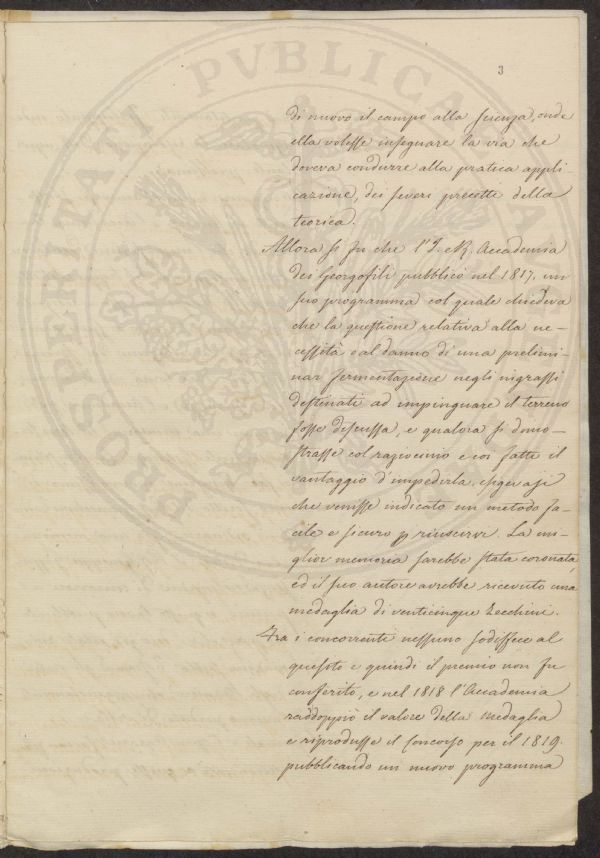 3
di nuovo il campo alla scienza, onde
ella volesse insegnare la via che
doveva condurre alla pratica appli
cazione, dei severi precetti della
teorica.
Allora si fu che l'I. e R. Accademia
dei Georgofili pubblicò nel 1817. un
suo programma col quale chiedeva
che la questione relativa alla ne-
cessità o al danno di una prelimi-
nar fermentazione negli ingrassi
destinati ad impinguare il terreno
fosse discussa, e qualora si dimo-
strasse col raziocinio e coi fatti il
vantaggio d'impedirla, esigevasi
che venisse indicato un metodo fa-
cile e sicuro p riuscirvi. La mi-
glior memoria sarebbe stata coronata
ed il suo autore avrebbe ricevuto una
medaglia di venticinque Zecchini.
Fra i concorrenti nessuno sodisfece al
quesito e quindi il premio non fu
conferito, e nel 1818 l'Accademia
raddoppiò il valore della medaglia
e riprodusse il Concorso per il 1819.
pubblicando un nuovo programma
PROSPERITATI PVBLICAE